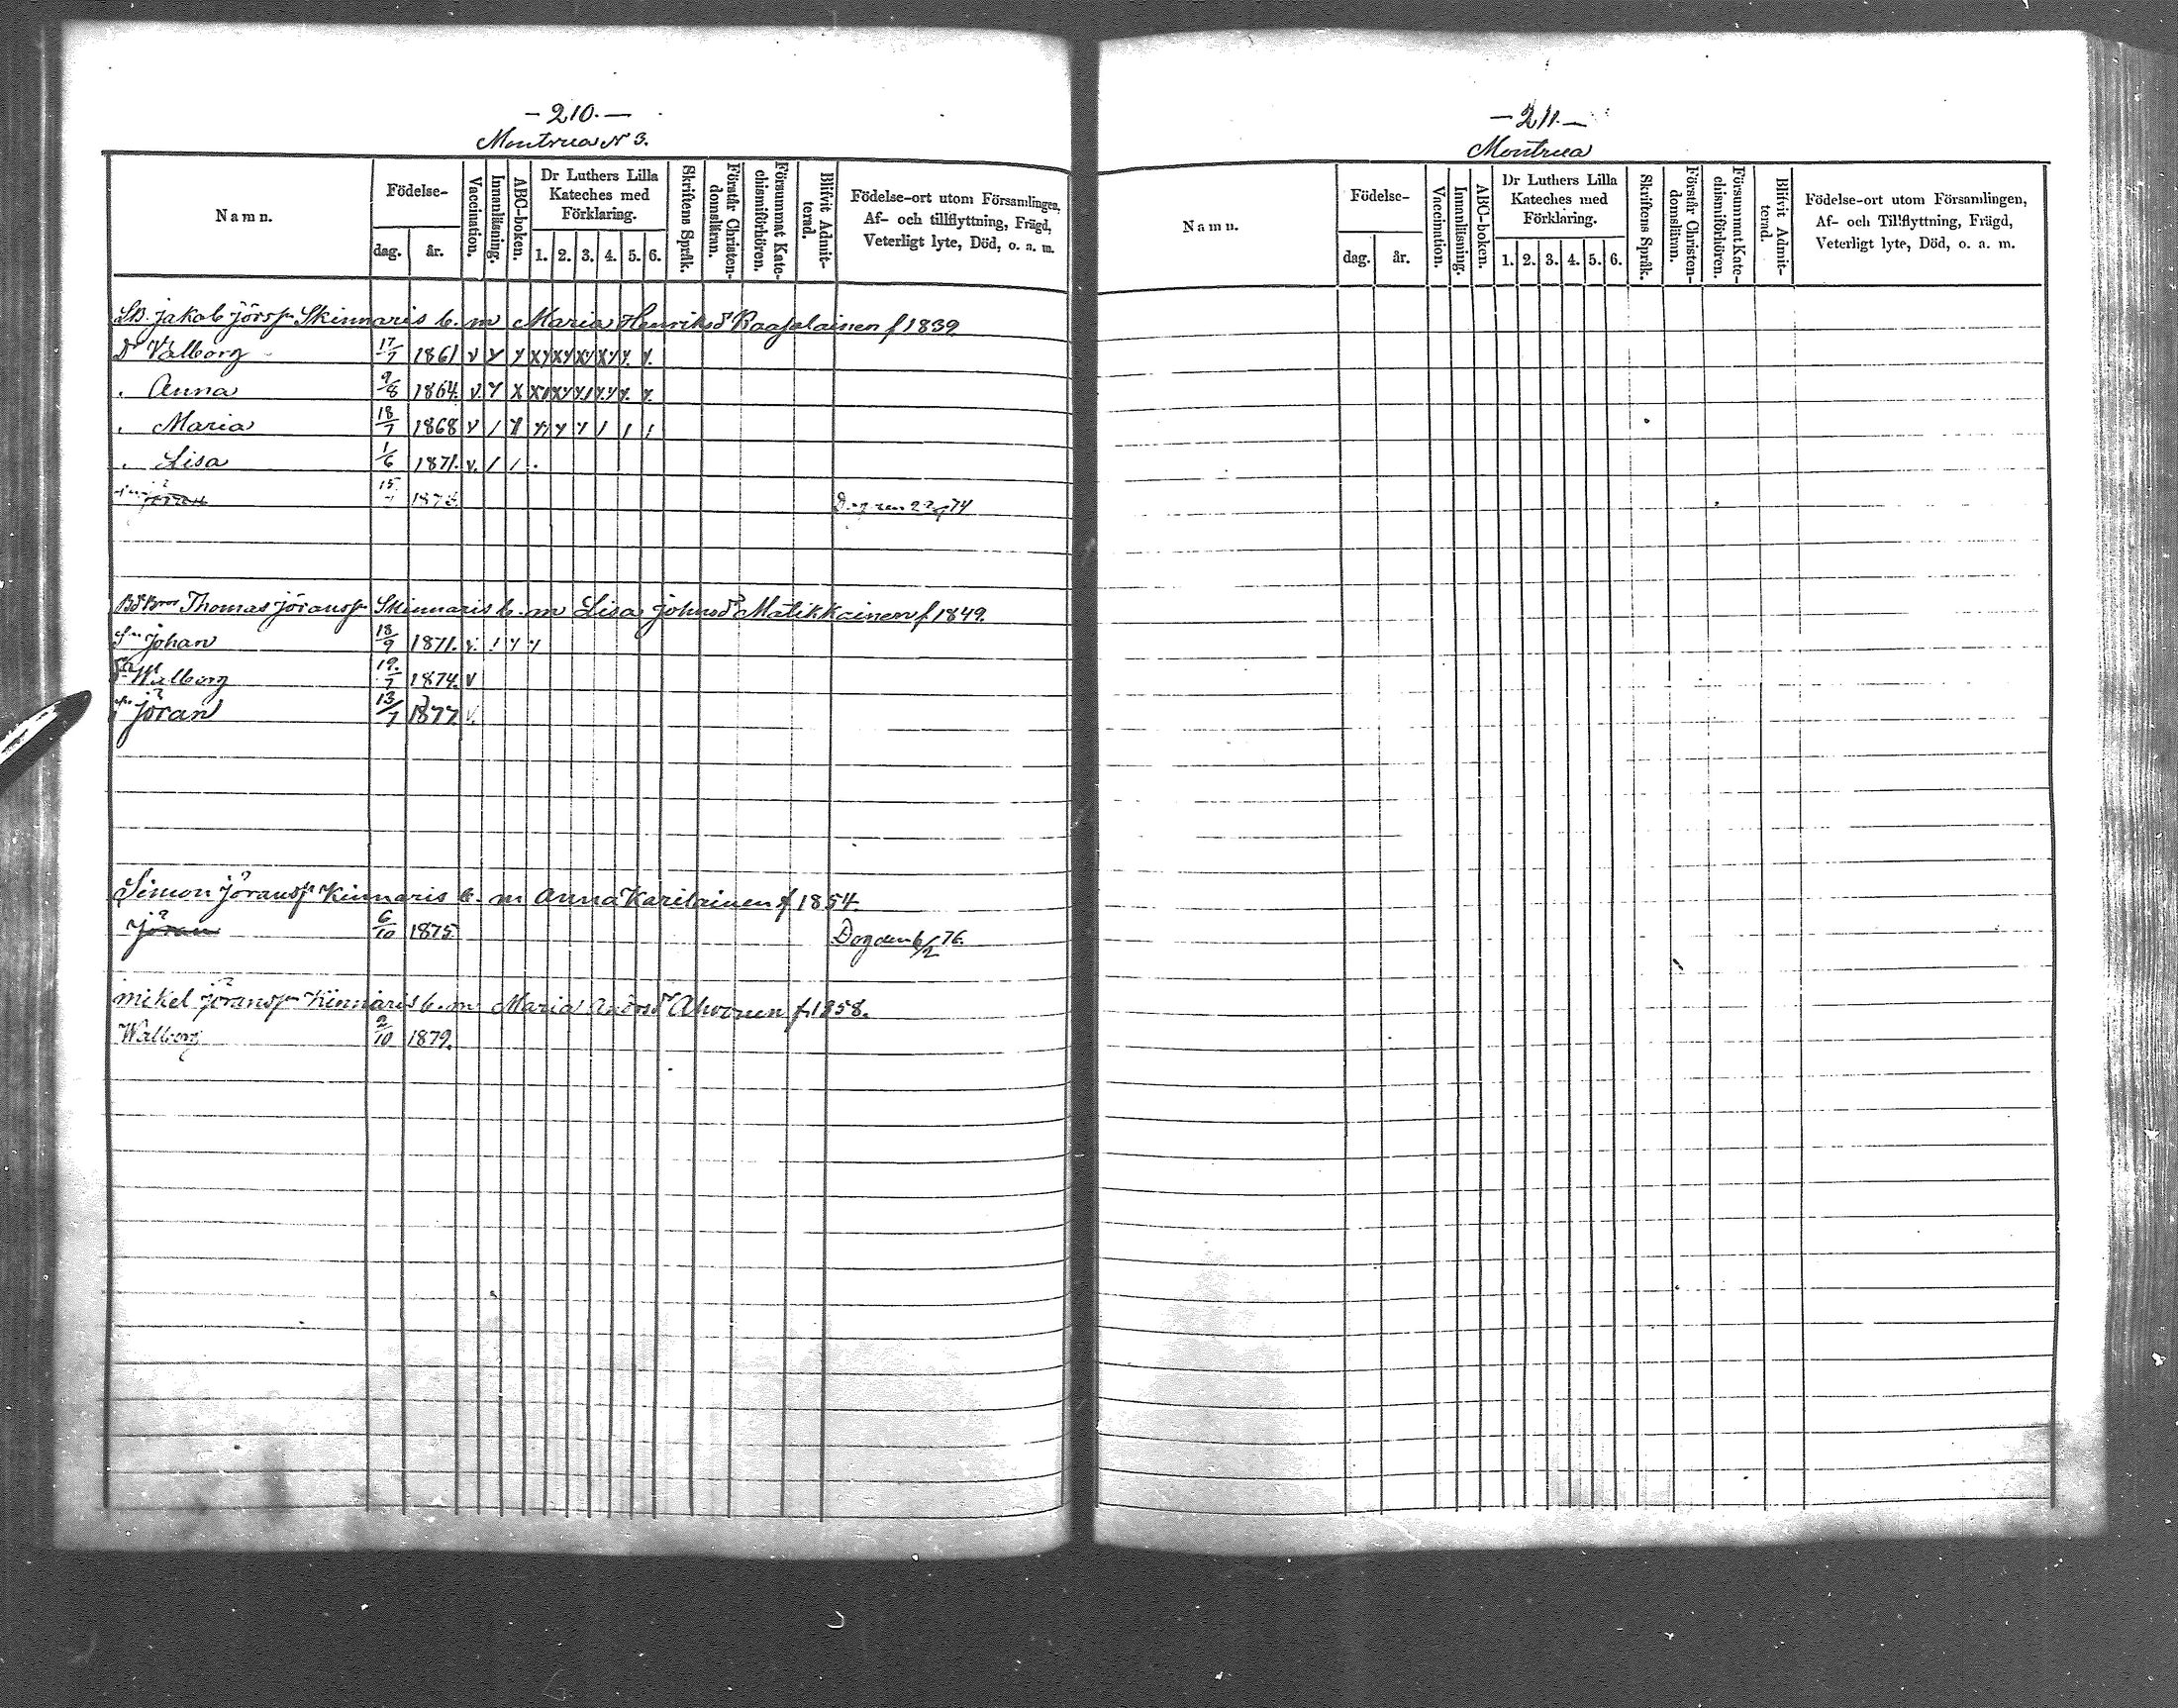 - 210. -
Montrua N 3.
Namn.
Födelse-
dag.
år.
Vaccination.
Innanläsning.
ABC-boken.
Dr Luthers Lilla Kateches med Förklaring.
1. 2. 3. 4. 5. 6.
Skriftens Språk.
Förstår Christen-domsläran.
Försummat Kate-chismiförhören.
Blifvit Admit-terad.
Födelse-ort utom Församlingen,
Af- och tillflyttning, Frägd,
Veterligt lyte, Död, o. a. m.
Jakob Jörsp Skinnaris b. m Maria Henriksd Raasalainen f 1839
Dr Valborg 17/7 1861 v
Anna 9/8 1864. v.
Maria 18/7 1868 v
Lisa 1/6 1871. v.
Jöran 15 74
Thomas Jöransp Skinnaris b. m Lisa Johnsd Matikkainen f. 1849.
Johan 18/9 1871. v.
Walborg 19/7 1874. v
Jöran 13/7 1877 v.
Simon Jöransp Kinnaris b. m Anna Karilainen f 1854.
Jöran 6/10 1875. Dog den 6/2 76.
Mikel Jöransp Kinnaris b. m Maria Andrsd Ahvonen f. 1858.
Walborg 2/10 1879.
- 211. -
Montrua
Namn.
Födelse-
dag.
år.
Vaccination.
Innanläsning.
ABC-boken.
Dr Luthers Lilla Kateches med Förklaring.
1. 2. 3. 4. 5. 6.
Skriftens Språk.
Förstår Christen-domsläran.
Försummat Kate-chismiförhören.
Blifvit Admit-terad.
Födelse-ort utom Församlingen,
Af- och Tillflyttning, Frägd,
Veterligt lyte, Död, o. a. m.